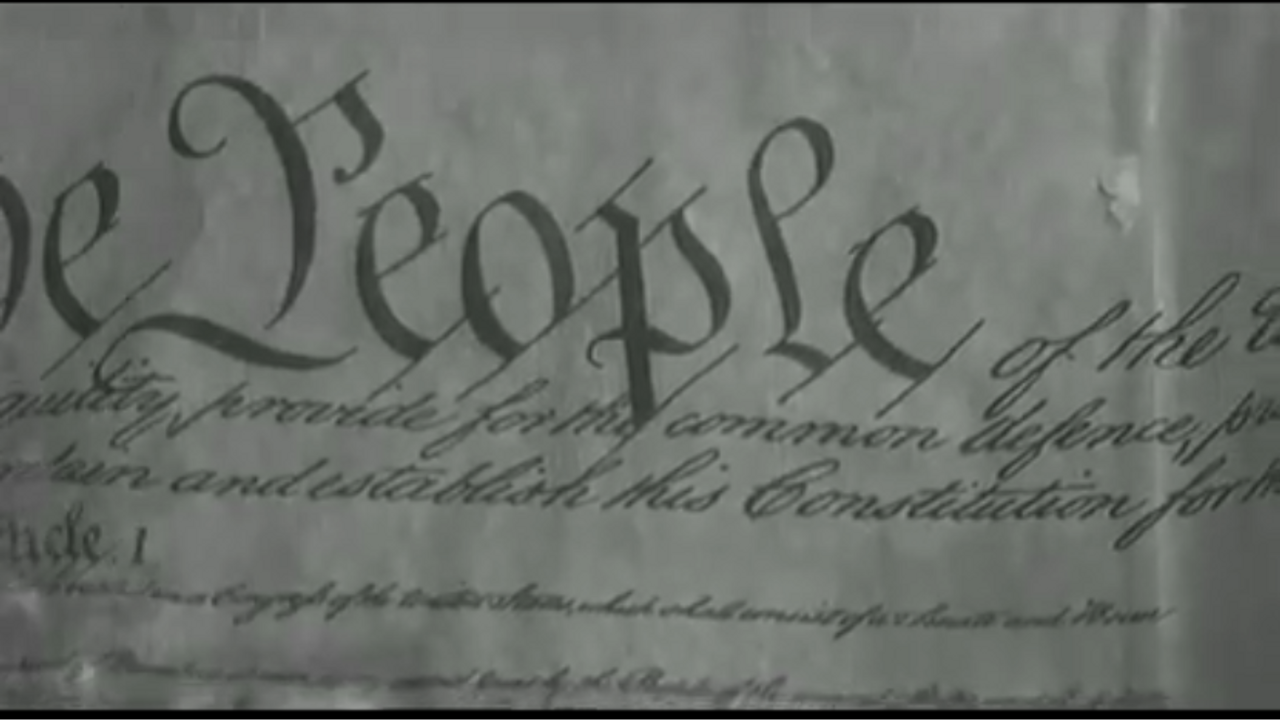 he People of the
quility, provide for the common defence, pro
rdain and establish this Constitution for th
ticle. I
a Congress of the United States, which shall consist of a Senate and House